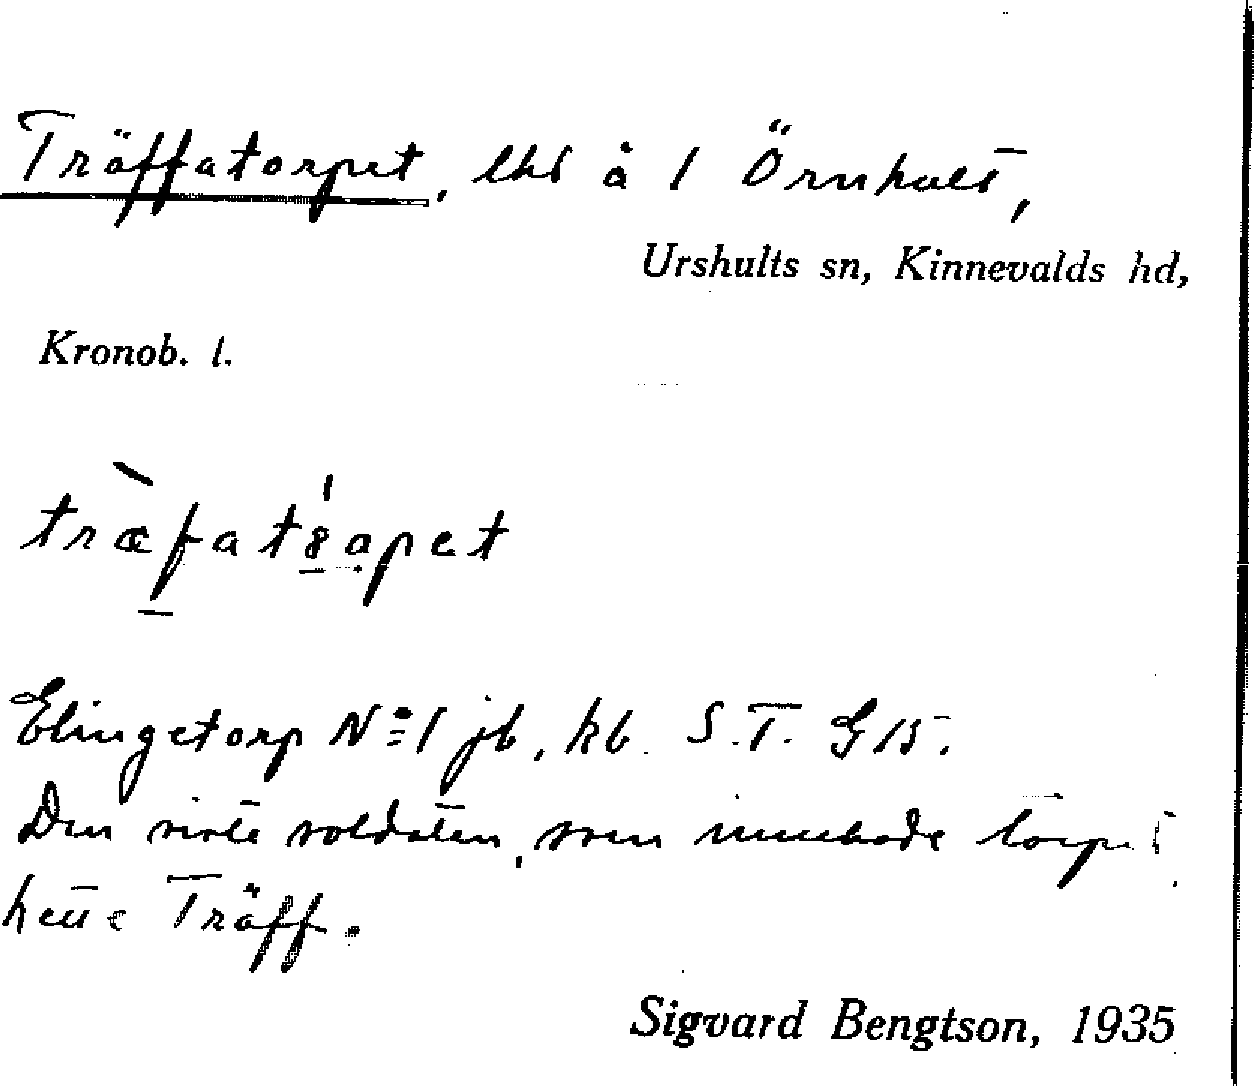 Träffatorpet, lht å 1 Örnhult,
Urshults sn, Kinnevalds hd,
Kronob. l.
træfat8apet
Elingetorp Nº 1 jb, kb. S.T. G 15.
Den siste soldaten, som innehade torpet,
hette Träff.
Sigvard Bengtson, 1935